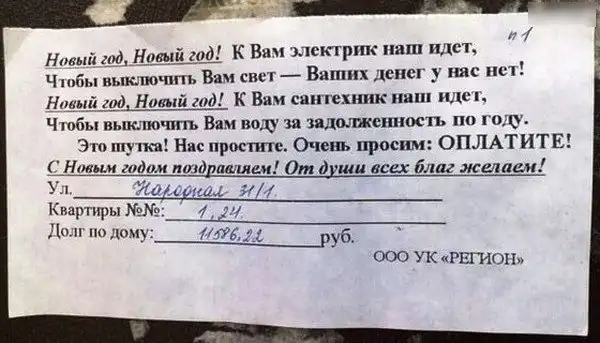 п1
Новый год, Новый год! К Вам электрик наш идет,
Чтобы выключить Вам свет — Ваших денег у нас нет!
Новый год, Новый год! К Вам сантехник наш идет,
Чтобы выключить Вам воду за задолженность по году.
Это шутка! Нас простите. Очень просим: ОПЛАТИТЕ!
С Новым годом поздравляем! От души всех благ желаем!
Ул. Народная 31/1.
Квартиры №№: 1, 24.
Долг по дому: 11586,22 руб.
ООО УК «РЕГИОН»